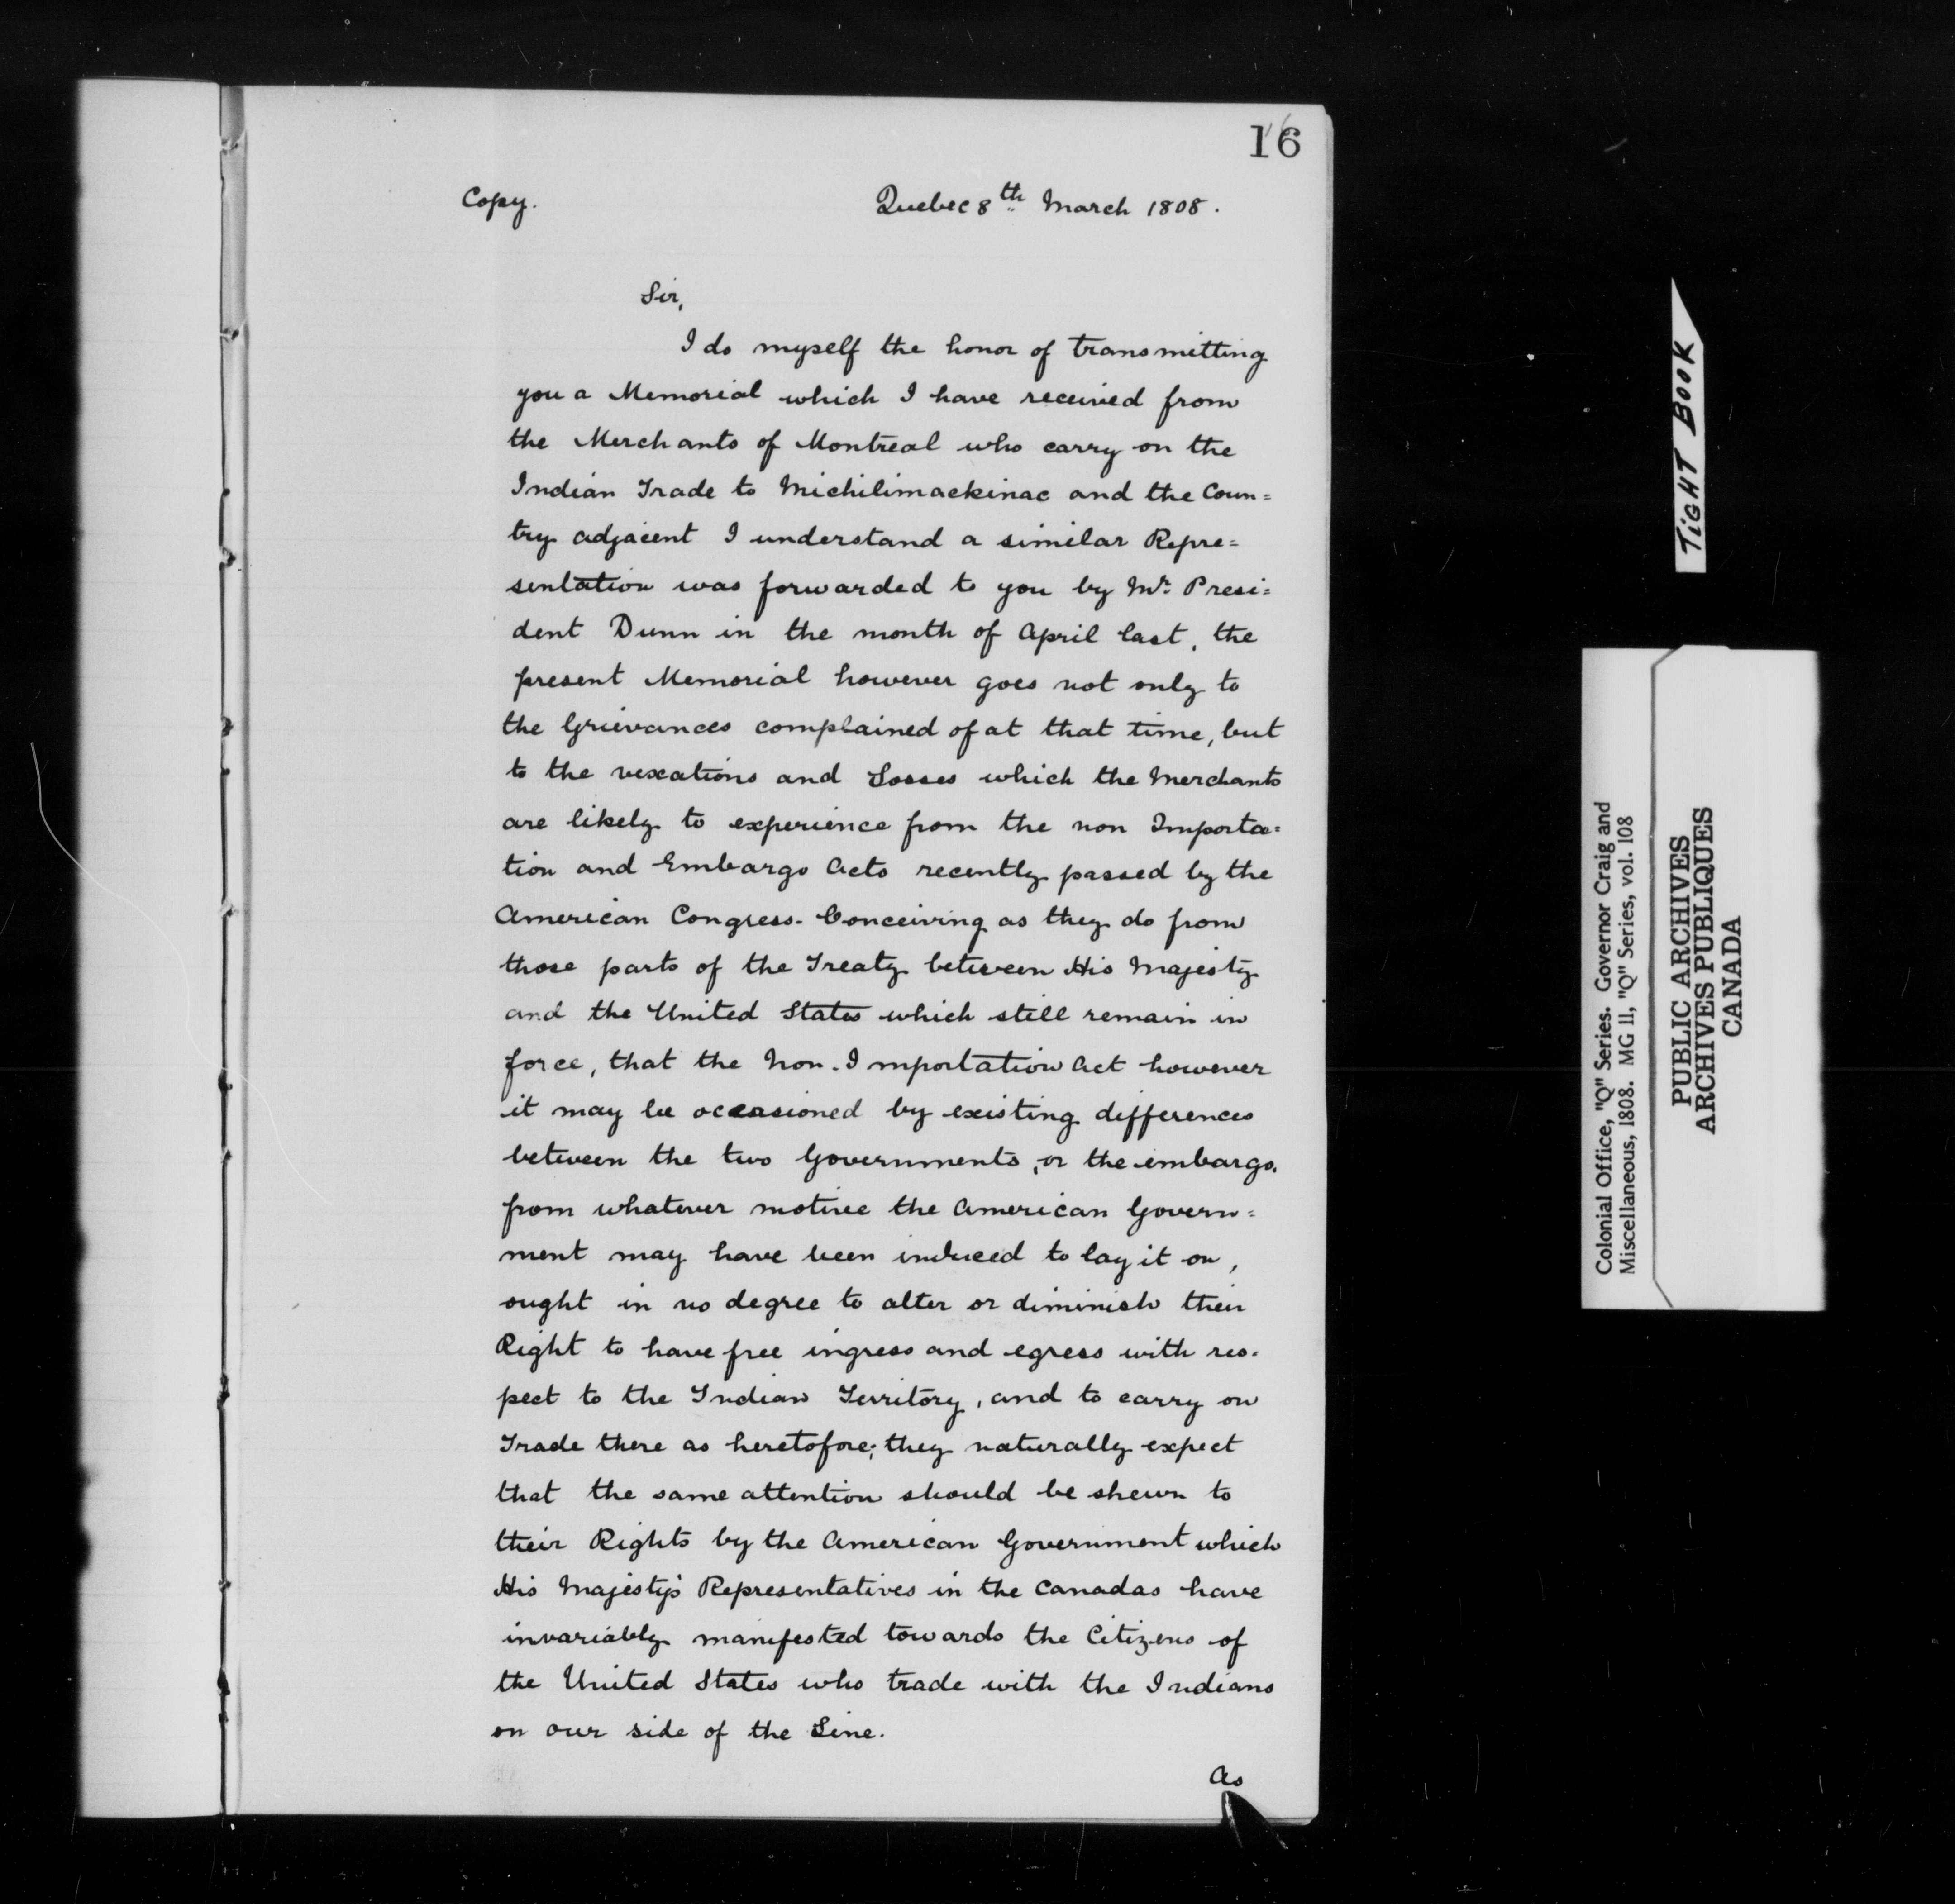 16
Copy. Quebec 8th March 1808.
Sir,
I do myself the honor of transmitting
you a Memorial which I have received from
the Merchants of Montreal who carry on the
Indian Trade to Michilimackinac and the Coun=
try adjacent I understand a similar Repre=
sentation was forwarded to you by Mr. Presi=
dent Dunn in the month of April last, the
present Memorial however goes not only to
the Grievances complained of at that time, but
to the vexations and Losses which the Merchants
are likely to experience from the non Importa=
tion and Embargo Acts recently passed by the
American Congress. Conceiving as they do from
those parts of the Treaty between His Majesty
and the United States which still remain in
force, that the Non-Importation Act however
it may be occasioned by existing differences
between the two Governments, or the embargo,
from whatever motive the American Govern=
ment may have been induced to lay it on,
ought in no degree to alter or diminish their
Right to have free ingress and egress with res-
pect to the Indian Territory, and to carry on
Trade there as heretofore; they naturally expect
that the same attention should be shewn to
their Rights by the American Government which
His Majesty's Representatives in the Canadas have
invariably manifested towards the Citizens of
the United States who trade with the Indians
on our side of the Line.
As
TIGHT BOOK
Colonial Office, "Q" Series. Governor Craig and
Miscellaneous, 1808. MG 11, "Q" Series, vol. 108
PUBLIC ARCHIVES
ARCHIVES PUBLIQUES
CANADA